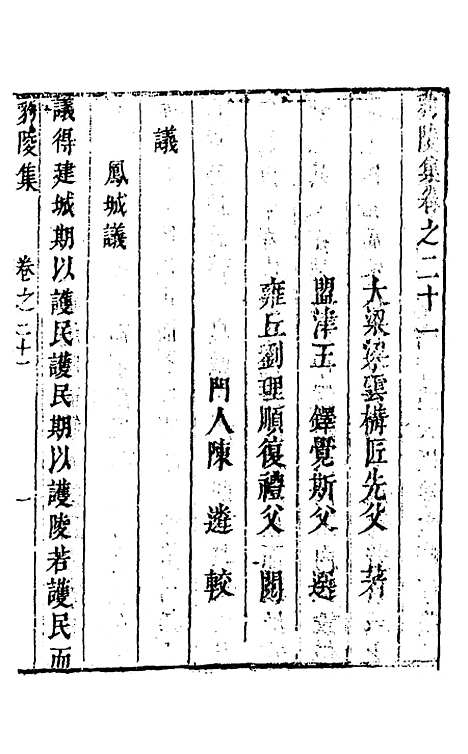 豹陵集卷之二十一
大梁梁雲構匠先父著
盟津王鐸覺斯父選
雍丘劉理順復禮父閱
門人陳遴較
議
鳳城議
議得建城期以護民護民期以護陵若護民而
豹陵集 卷之二十一 一